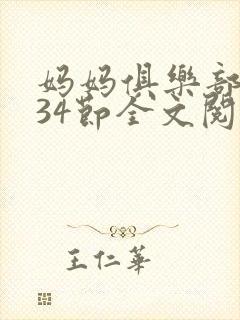 妈妈俱樂部
34節全文閱
王仁華